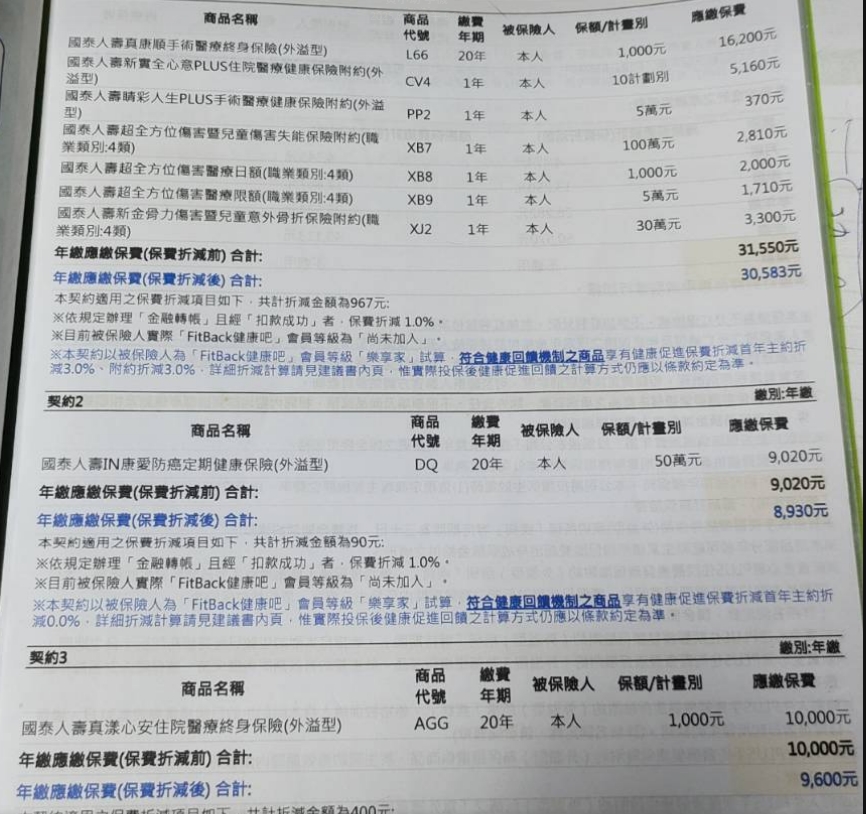 商品名稱 商品代號 繳費年期 被保險人 保額/計畫別 應繳保費
國泰人壽真康順手術醫療終身保險(外溢型) L66 20年 本人 1,000元 16,200元
國泰人壽新實全心意PLUS住院醫療健康保險附約(外溢型) CV4 1年 本人 10計劃別 5,160元
國泰人壽睛彩人生PLUS手術醫療健康保險附約(外溢型) PP2 1年 本人 5萬元 370元
國泰人壽超全方位傷害暨兒童傷害失能保險附約(職業類別:4類) XB7 1年 本人 100萬元 2,810元
國泰人壽超全方位傷害醫療日額(職業類別:4類) XB8 1年 本人 1,000元 2,000元
國泰人壽超全方位傷害醫療限額(職業類別:4類) XB9 1年 本人 5萬元 1,710元
國泰人壽新金骨力傷害暨兒童意外骨折保險附約(職業類別:4類) XJ2 1年 本人 30萬元 3,300元
年繳應繳保費(保費折減前) 合計: 31,550元
年繳應繳保費(保費折減後) 合計: 30,583元
本契約適用之保費折減項目如下，共計折減金額為967元:
※依規定辦理「金融轉帳」且經「扣款成功」者，保費折減 1.0%。
※目前被保險人實際「FitBack健康吧」會員等級為「尚未加入」。
※本契約以被保險人為「FitBack健康吧」會員等級「樂享家」試算，符合健康回饋機制之商品享有健康促進保費折減首年主約折
減3.0%、附約折減3.0%，詳細折減計算請見建議書內頁，惟實際投保後健康促進回饋之計算方式仍應以條款約定為準。
契約2 繳別:年繳
商品名稱 商品代號 繳費年期 被保險人 保額/計畫別 應繳保費
國泰人壽IN康愛防癌定期健康保險(外溢型) DQ 20年 本人 50萬元 9,020元
年繳應繳保費(保費折減前) 合計: 9,020元
年繳應繳保費(保費折減後) 合計: 8,930元
本契約適用之保費折減項目如下，共計折減金額為90元:
※依規定辦理「金融轉帳」且經「扣款成功」者，保費折減 1.0%。
※目前被保險人實際「FitBack健康吧」會員等級為「尚未加入」。
※本契約以被保險人為「FitBack健康吧」會員等級「樂享家」試算，符合健康回饋機制之商品享有健康促進保費折減首年主約折
減0.0%，詳細折減計算請見建議書內頁，惟實際投保後健康促進回饋之計算方式仍應以條款約定為準。
契約3 繳別:年繳
商品名稱 商品代號 繳費年期 被保險人 保額/計畫別 應繳保費
國泰人壽真漾心安住院醫療終身保險(外溢型) AGG 20年 本人 1,000元 10,000元
年繳應繳保費(保費折減前) 合計: 10,000元
年繳應繳保費(保費折減後) 合計: 9,600元
本契約適用之保費折減項目如下，共計折減金額為400元: